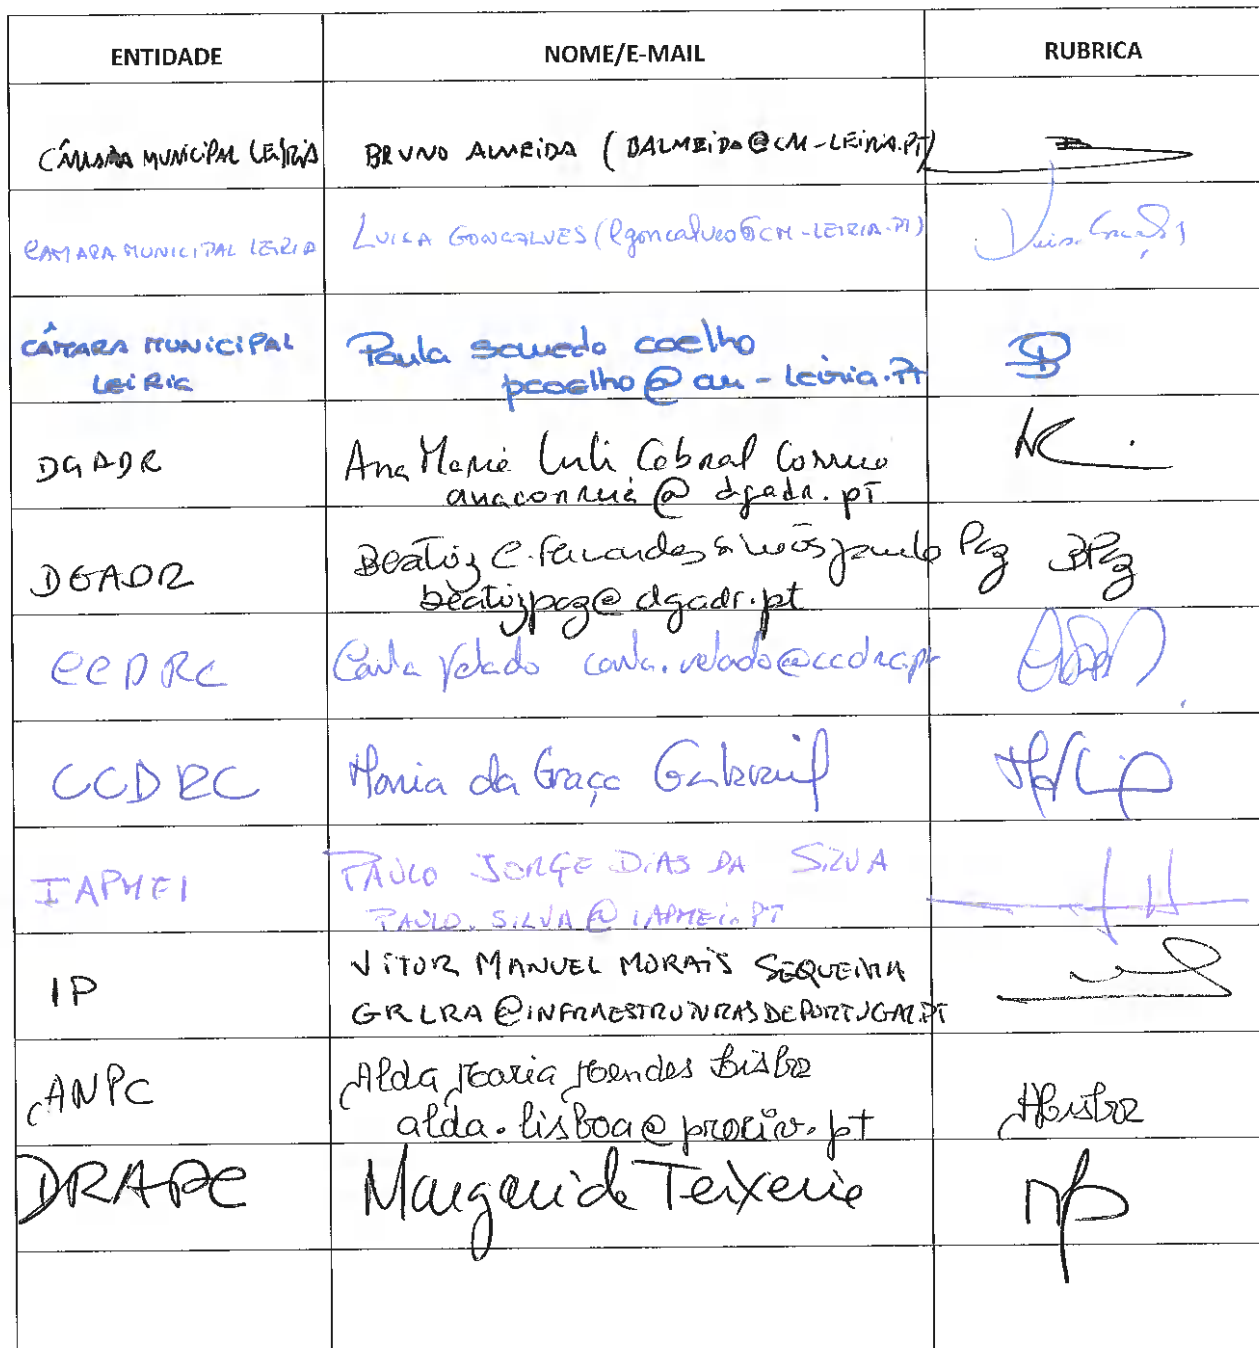 ENTIDADE NOME/E-MAIL RUBRICA
CÂMARA MUNICIPAL LEIRIA BRUNO ALMEIDA (BALMEIDA@CM-LEIRIA.PT)
CAMARA MUNICIPAL LEIRIA LUISA GONÇALVES (lgoncalves@CM-LEIRIA.PT)
CÂMARA MUNICIPAL Paula coelho
LEIRIA pcoelho@cm-leiria.PT
DGADR Ana Maria Cabral Correia
anacorreia@dgadr.pt
DGADR Beatriz C. Fernandes Paz BPaz
beatrizpaz@dgadr.pt
CCDRC Carla Velado carla.velado@ccdrc.pt
CCDRC Maria da Graça Gabriel
IAPMEI PAULO JORGE DIAS DA SILVA
PAULO.SILVA@IAPMEI.PT
IP VITOR MANUEL MORAIS SEQUEIRA
GRLRA@INFRAESTRUTURASDEPORTUGAL.PT
ANPC Alda Maria Mendes Lisboa ALisboa
alda.lisboa@prociv.pt
DRAPC Margarida Teixeira